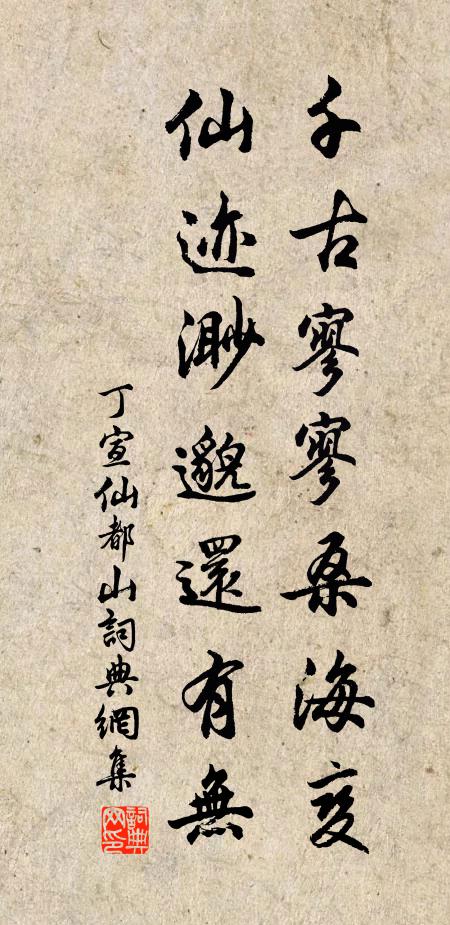 千古寥寥桑海变
仙迹渺邈還有無
丁宣仙都山詞典網集
詞典网印